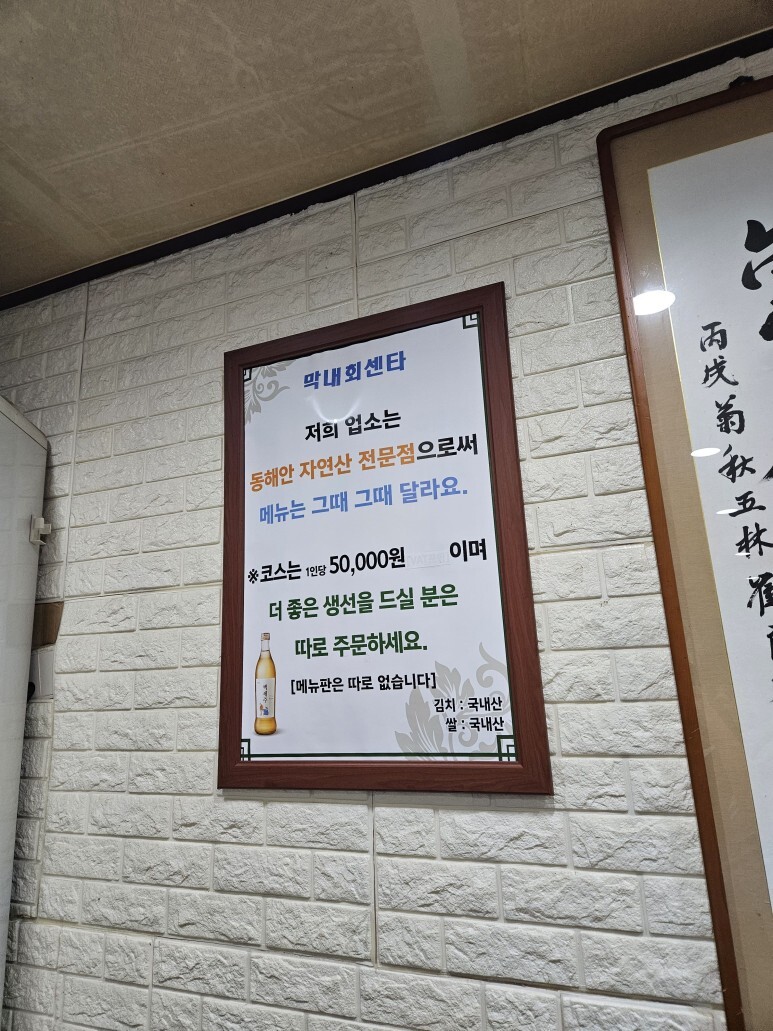 막내회센타
저희 업소는
동해안 자연산 전문점으로써
메뉴는 그때 그때 달라요.
※코스는 1인당 50,000원 이며
더 좋은 생선을 드실 분은
따로 주문하세요.
[메뉴판은 따로 없습니다]
김치 : 국내산
쌀 : 국내산
丙戌菊秋五林